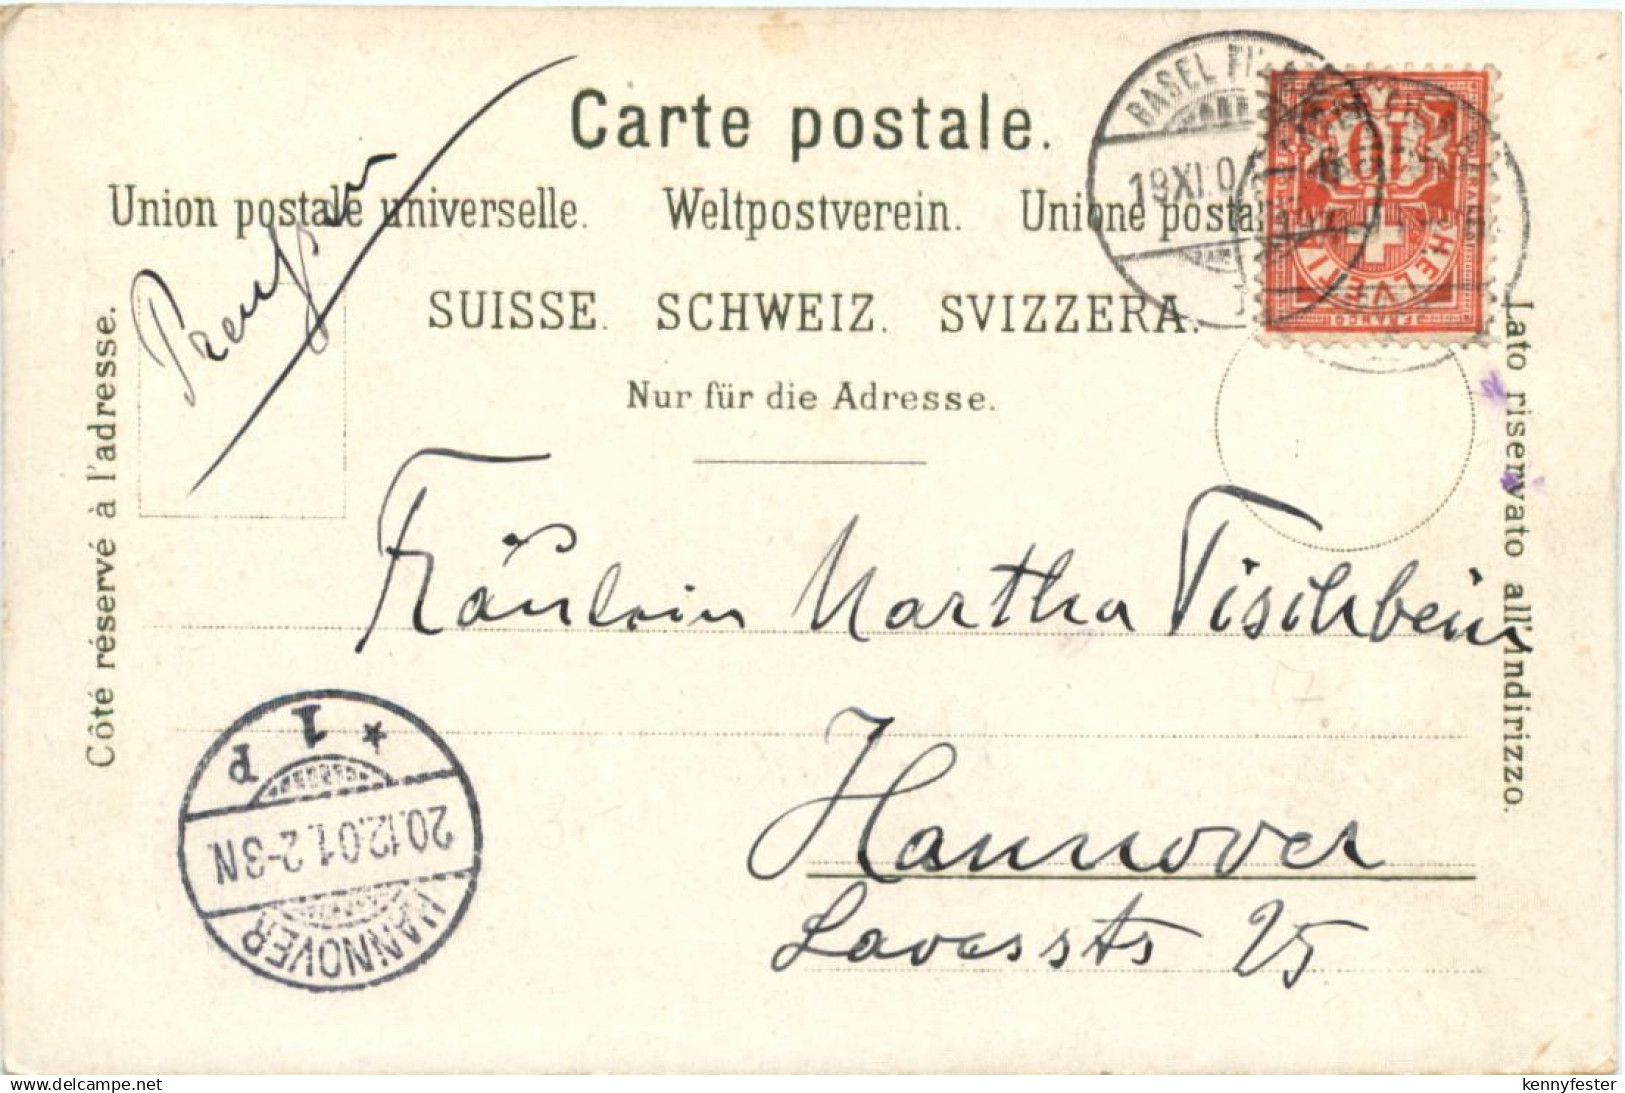 Carte postale.
Union postale universelle. Weltpostverein. Unione posta
SUISSE. SCHWEIZ. SVIZZERA.
Nur für die Adresse.
Côté réservé à l'adresse.
Lato riservato all'Indirizzo.
Preussen
BASEL
19 XI. 0
10
HELVETIA
FRANCO
Fräulein Martha Tischbein
Hannover
Lavesstr 25
HANNOVER
20.12.01. 2-3N
* 1 P
www.delcampe.net
kennyfester